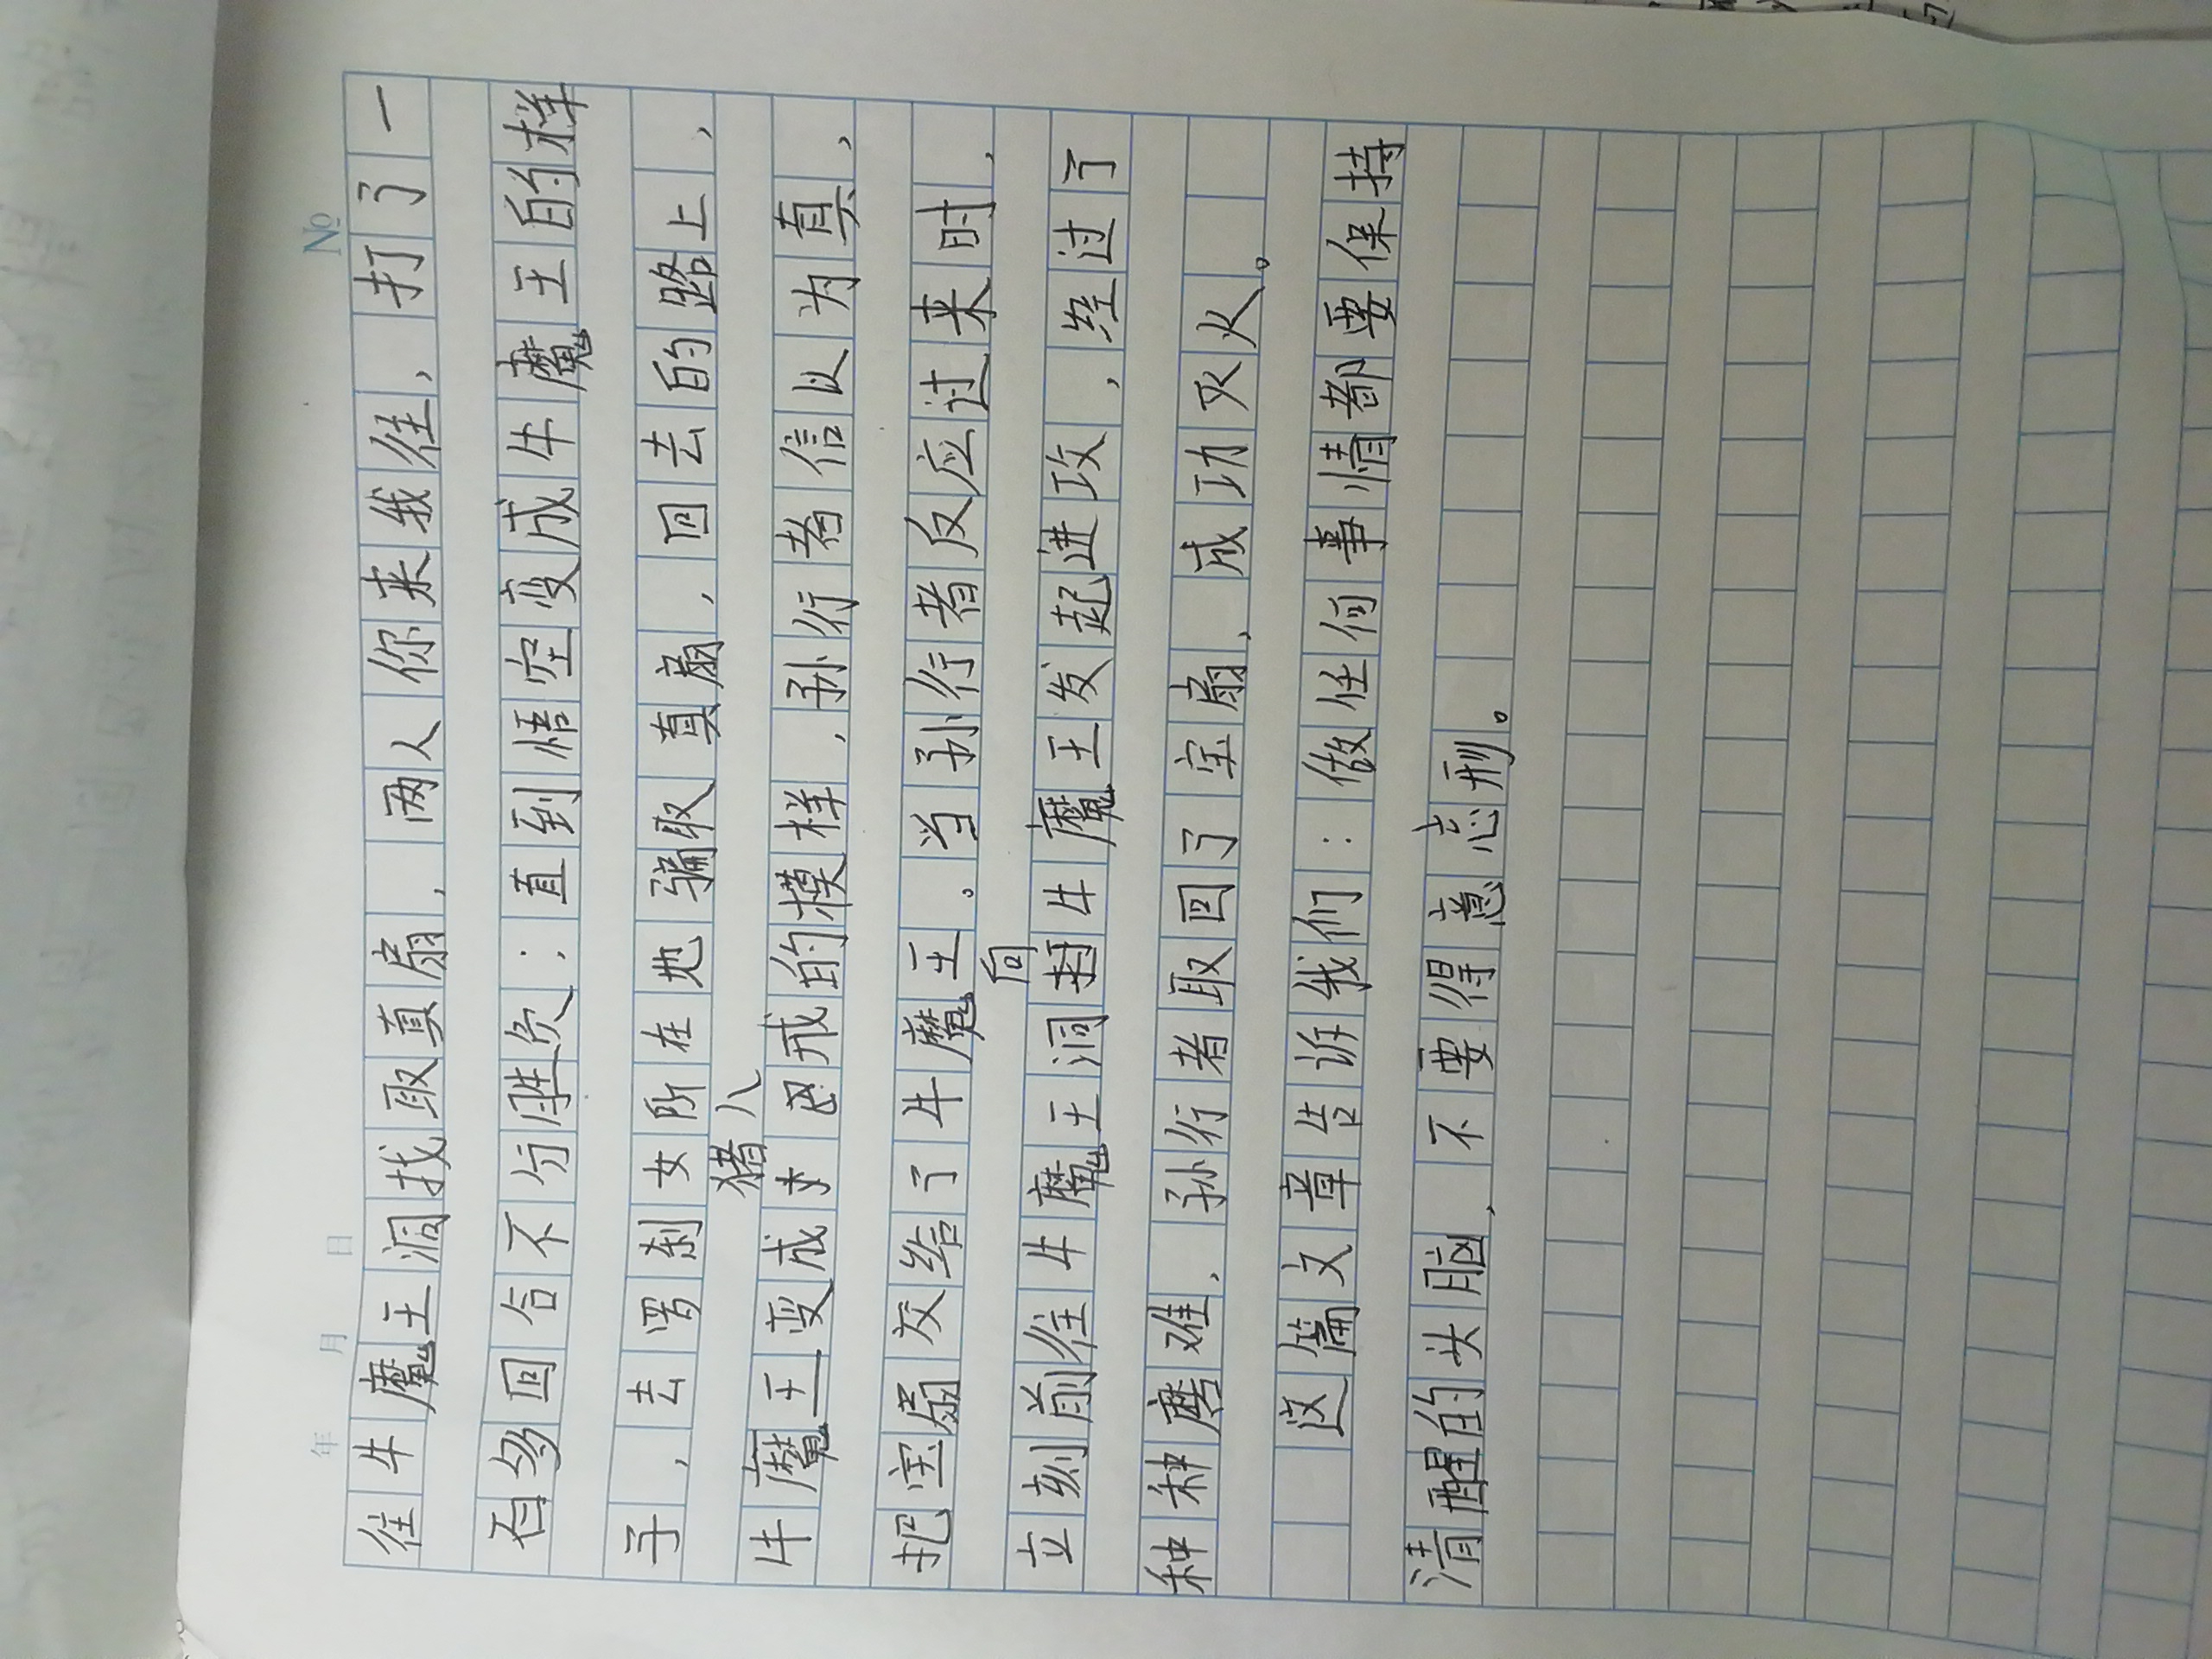 年 月 日 №
往牛魔王洞找取真扇，两人你来我往，打了一
百多回合不分胜负；直到悟空变成牛魔王的样
子，去罗刹女所在地骗取真扇，回去的路上，
猪八
牛魔王变成戒的模样，孙行者信以为真，
把宝扇交给了牛魔王。当孙行者反应过来时，
向
立刻前往牛魔王洞牛魔王发起进攻，经过了
种种磨难，孙行者取回了宝扇，成功灭火。
这篇文章告诉我们：做任何事情都要保持
清醒的头脑，不要得意忘形。